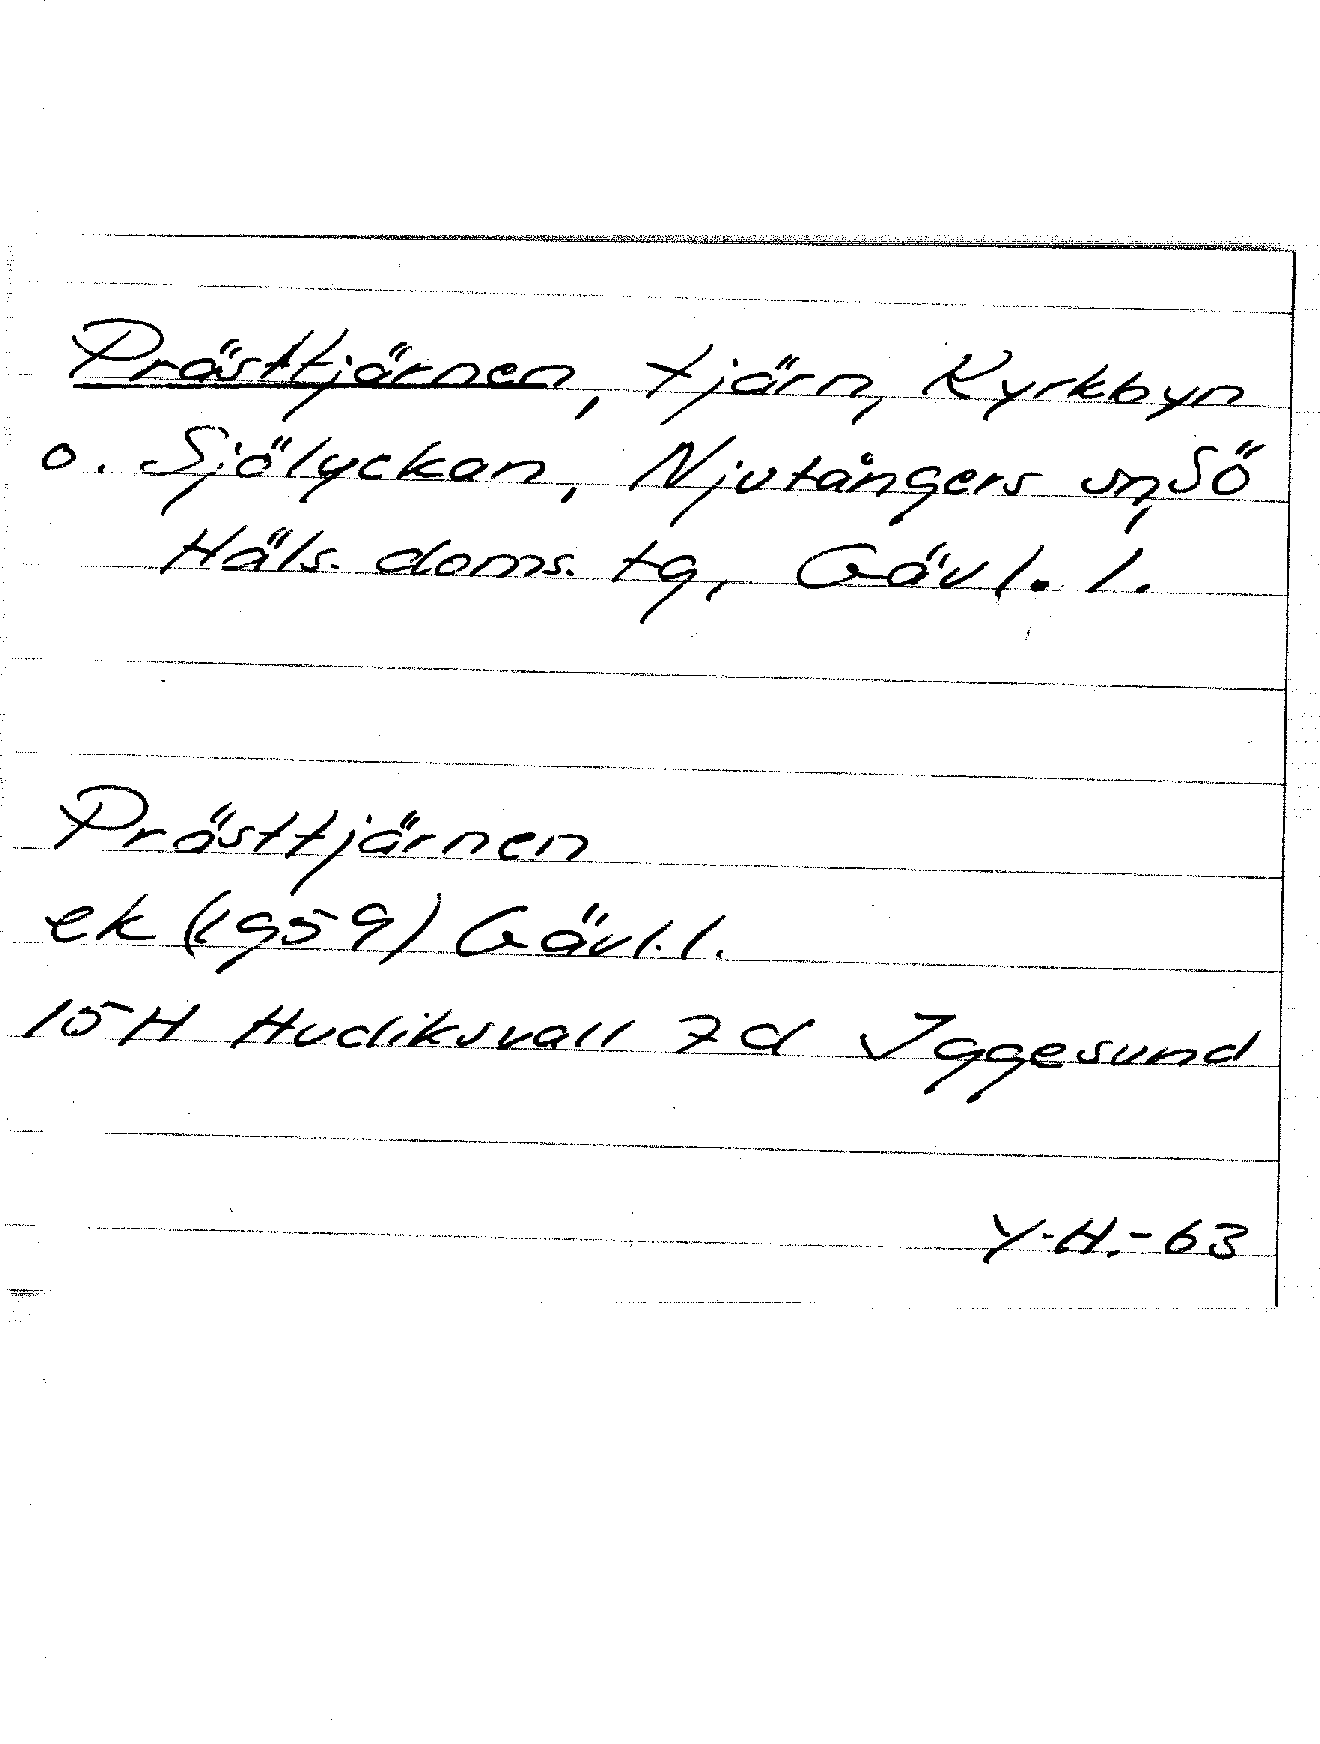 Prästtjärnen, tjärn, Kyrkbyn
o. Sjölyckan, Njutångers sn, Sö
Häls. doms. tg, Gävl. l.
Prästtjärnen
ek (1959) Gävl. l.
15H Hudiksvall 7d Iggesund
Y-H.-63